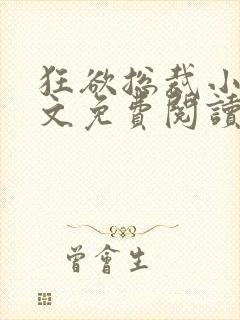 狂欲總裁小
文免費閱讀
曾會生